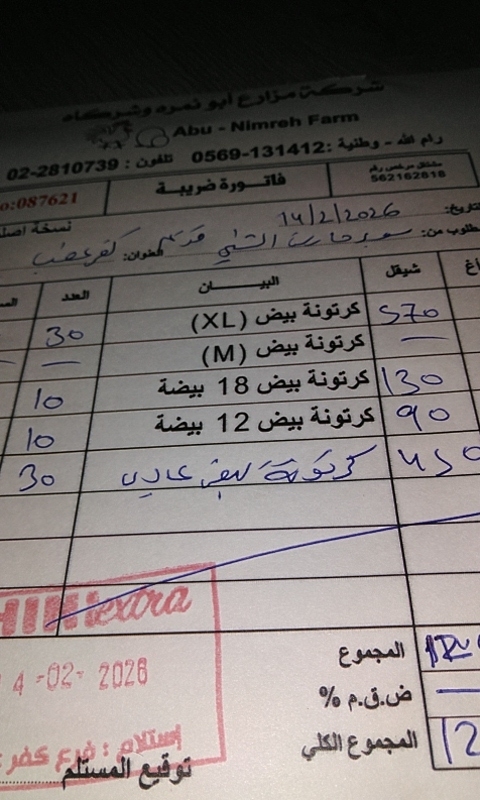 شركة مزارع أبو نمره وشركاه
Abu - Nimreh Farm
رام الله - وطنية: 0569-131412 تلفون: 02-2810739
مشتغل مرخص رقم
562162818
فاتورة ضريبة
o:087621
نسخة اصل
تاريخ: 14/2/2026
طلوب من: سوبرماركت الشني قديم العنوان: كفر عقب
أغ شيقل البيان العدد الس
570 كرتونة بيض (XL) 30
— كرتونة بيض (M) —
130 كرتونة بيض 18 بيضة 10
90 كرتونة بيض 12 بيضة 10
450 كرتونة بيض عادي 30
المجموع
ض.ق.م %
المجموع الكلي 12
HINI extra
4-02-2026
إستلام: فرع كفر ع
توقيع المستلم